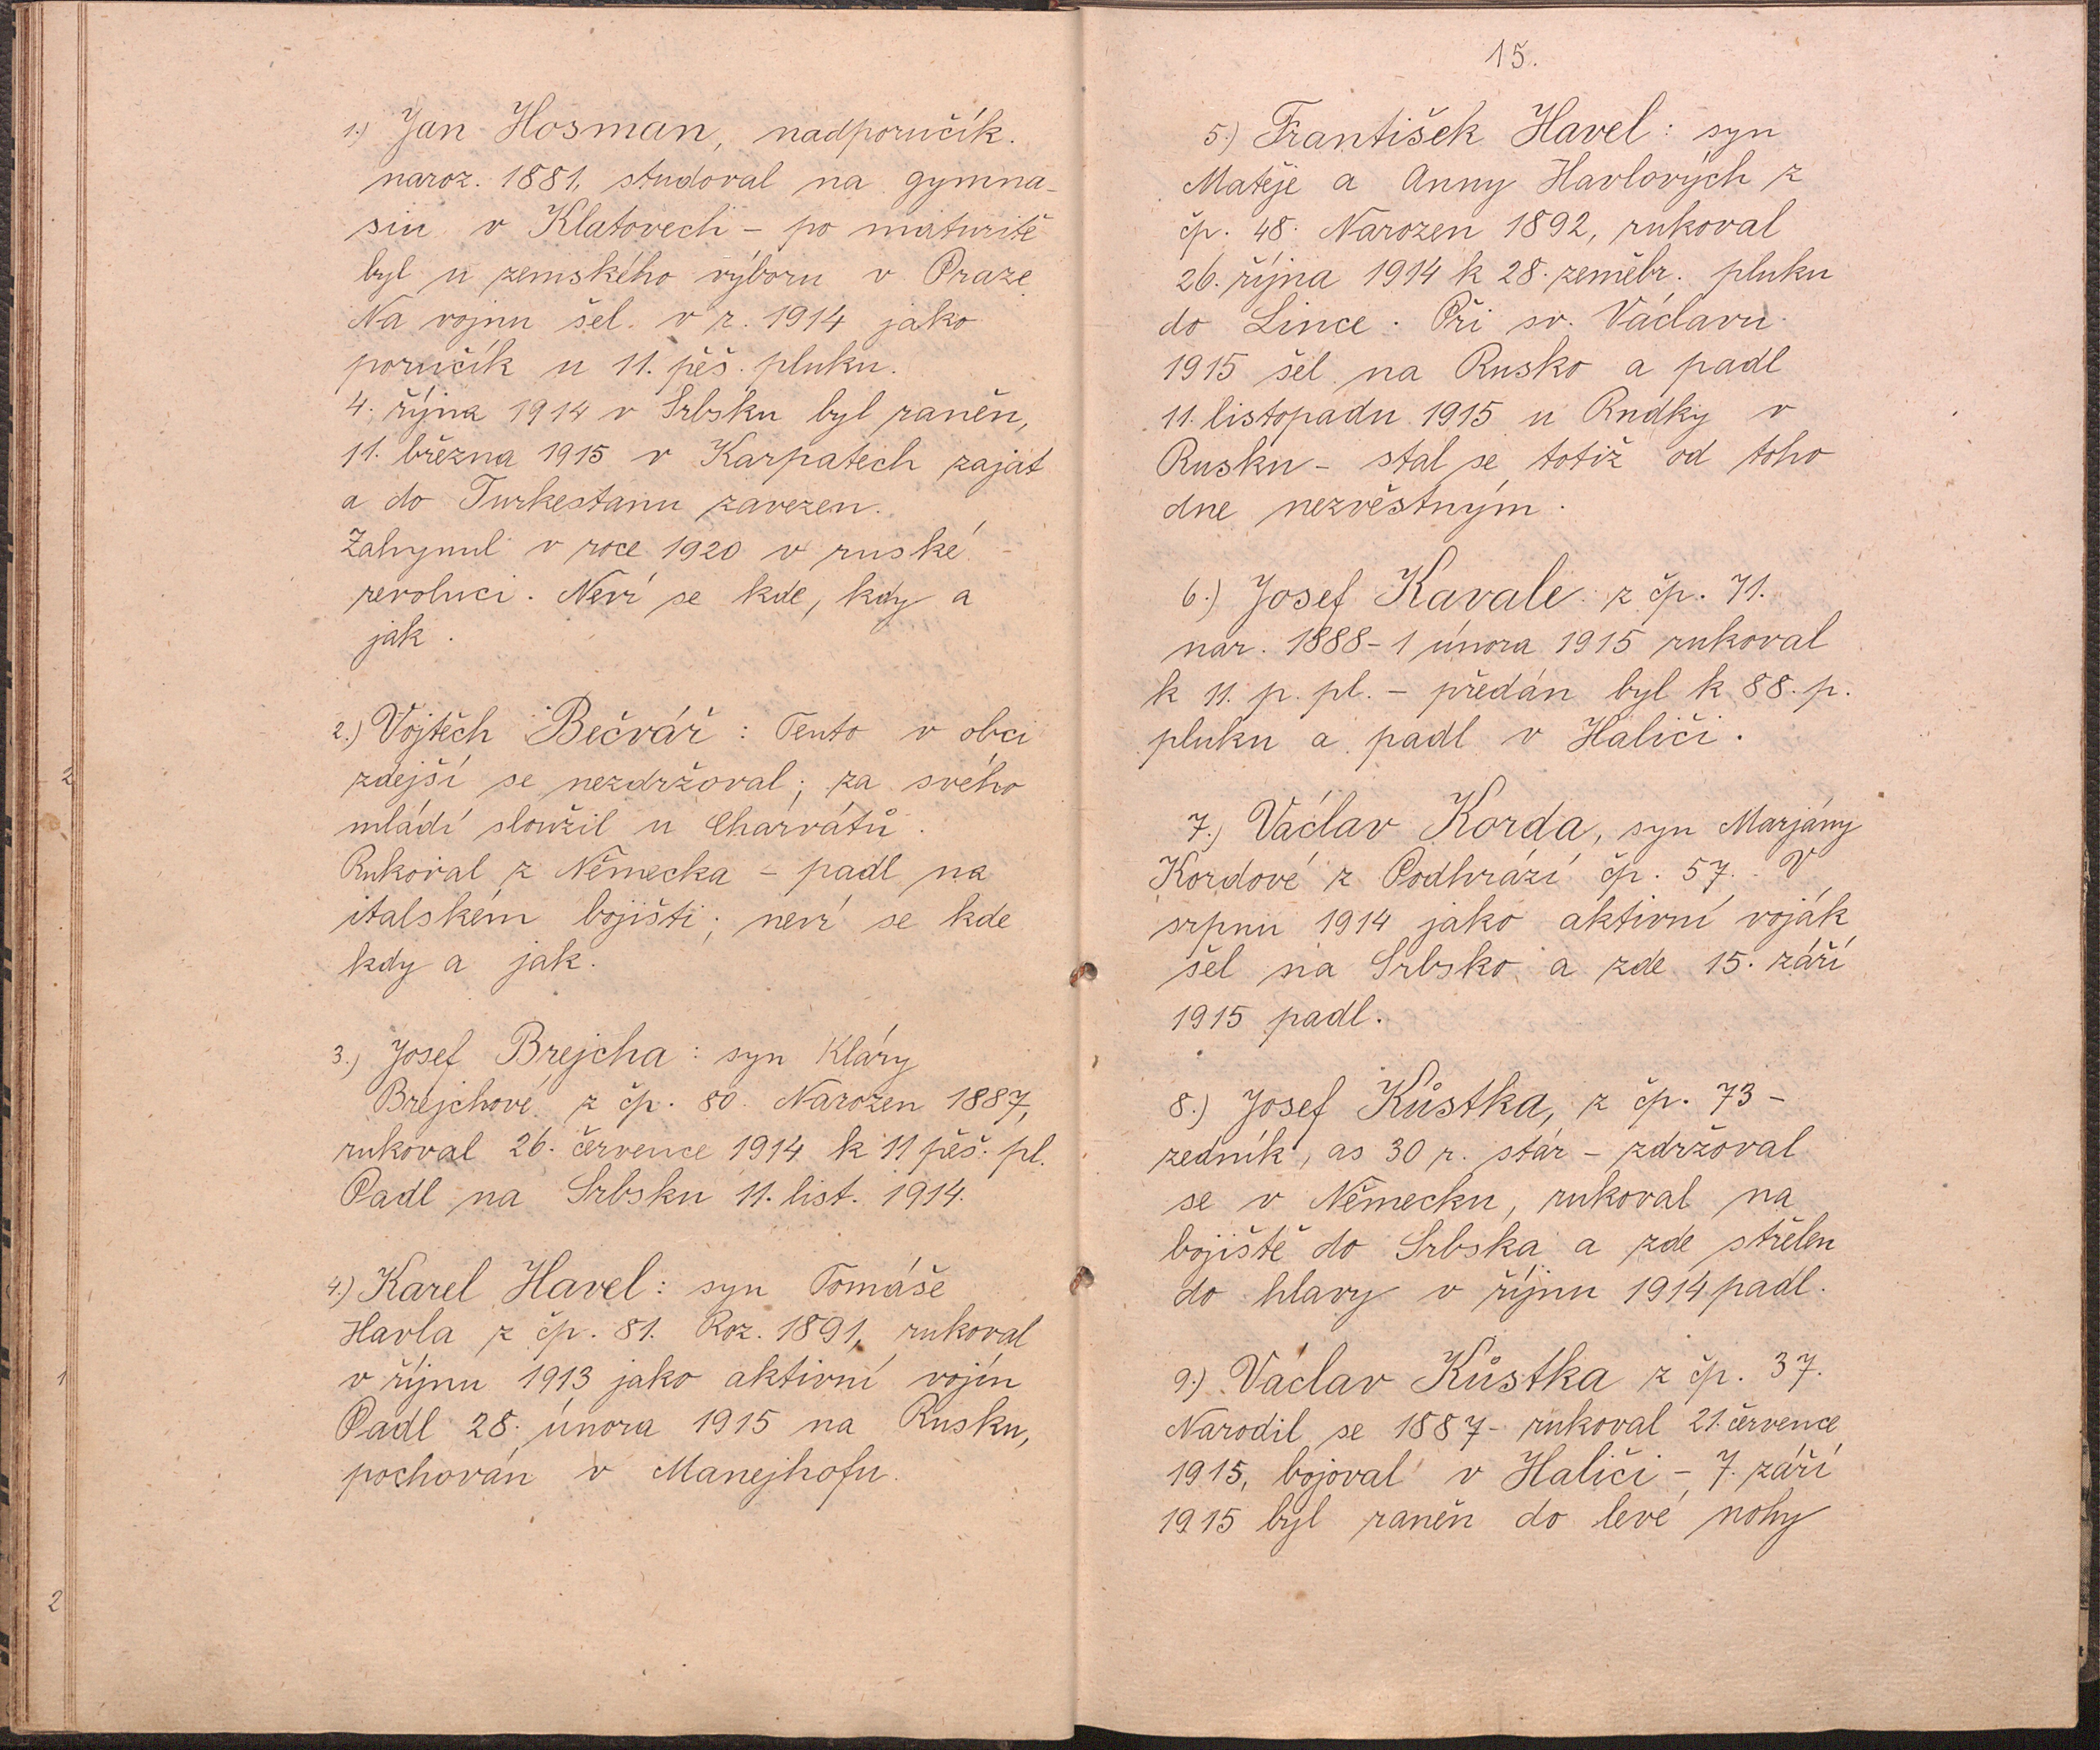 1.) Jan Hosman, nadporučík.
naroz. 1881, studoval na gymna-
siu v Klatovech - po maturitě
byl u zemského výboru v Praze.
Na vojnu šel v r. 1914 jako
poručík u 11. pěš. pluku.
4. října 1914 v Srbsku byl raněn,
11. března 1915 v Karpatech zajat
a do Turkestanu zavezen.
Zahynul v roce 1920 v ruské
revoluci. Neví se kde, kdy a
jak.
2.) Vojtěch Bečvář: Tento v obci
zdejší se nezdržoval; za svého
mládí sloužil u Charvátů.
Rukoval z Německa - padl na
italském bojišti; neví se kde
kdy a jak.
3.) Josef Brejcha: syn Kláry
Brejchové z čp. 80. Narozen 1887,
rukoval 26. července 1914 k 11 pěš. pl.
Padl na Srbsku 11. list. 1914.
4.) Karel Havel: syn Tomáše
Havla z čp. 81. Roz. 1891, rukoval
v říjnu 1913 jako aktivní vojín
Padl 28. února 1915 na Rusku,
pochován v Manejhofu.
2
1
2
15.
5.) František Havel: syn
Matěje a Anny Havlových z
čp. 48. Narozen 1892, rukoval
26. října 1914 k 28. zeměbr. pluku
do Lince. Při sv. Václavu
1915 šel na Rusko a padl
11. listopadu 1915 u Rudky v
Rusku - stal se totiž od toho
dne nezvěstným.
6.) Josef Kavale z čp. 71.
nar. 1888 - 1 února 1915 rukoval
k 11. p. pl. - předán byl k 88. p.
pluku a padl v Haliči.
7.) Václav Korda, syn Marjány
Kordové z Podhrází čp. 57. V
srpnu 1914 jako aktivní voják
šel na Srbsko a zde 15. září
1915 padl.
8.) Josef Kůstka, z čp. 73 -
zedník, as 30 r. stár - zdržoval
se v Německu, rukoval na
bojiště do Srbska a zde střelen
do hlavy v říjnu 1914 padl.
9.) Václav Kůstka z čp. 37.
Narodil se 1887 - rukoval 21. července
1915, bojoval v Haliči - 7. září
1915 byl raněn do levé nohy